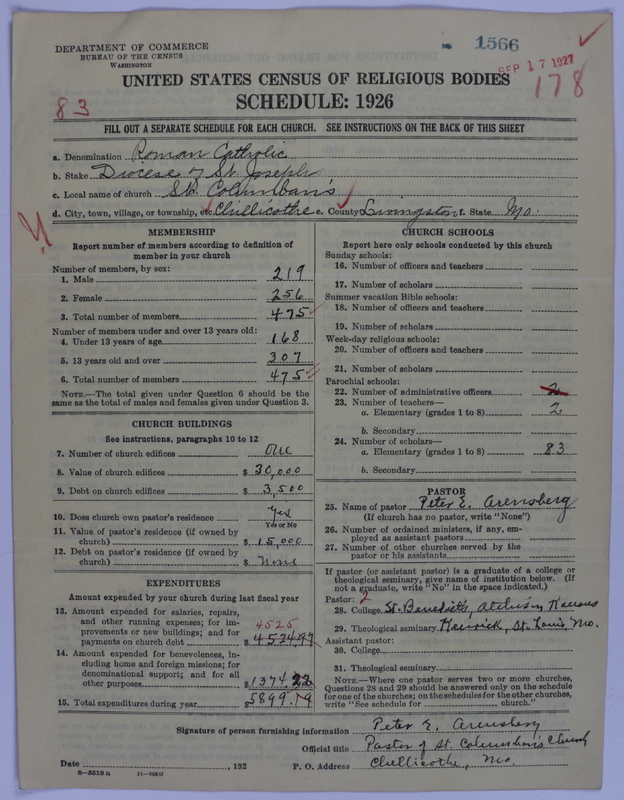 DEPARTMENT OF COMMERCE
BUREAU OF THE CENSUS
WASHINGTON
1566
SEP 17 1927
178
83
UNITED STATES CENSUS OF RELIGIOUS BODIES
SCHEDULE: 1926
FILL OUT A SEPARATE SCHEDULE FOR EACH CHURCH. SEE INSTRUCTIONS ON THE BACK OF THIS SHEET
a. Denomination Roman Catholic
b. Stake Diocese of St. Joseph
c. Local name of church St. Columban's
d. City, town, village, or township, etc. Chillicothe e. County Livingston f. State Mo.
MEMBERSHIP
Report number of members according to definition of
member in your church
Number of members, by sex:
1. Male 219
2. Female 256
3. Total number of members 475
Number of members under and over 13 years old:
4. Under 13 years of age 168
5. 13 years old and over 307
6. Total number of members 475
NOTE.—The total given under Question 6 should be the
same as the total of males and females given under Question 3.
CHURCH BUILDINGS
See instructions, paragraphs 10 to 12
7. Number of church edifices One
8. Value of church edifices $ 30,000
9. Debt on church edifices $ 3,500
10. Does church own pastor's residence Yes
Yes or No
11. Value of pastor's residence (if owned by
church) $ 15,000
12. Debt on pastor's residence (if owned by
church) $ None
EXPENDITURES
Amount expended by your church during last fiscal year
13. Amount expended for salaries, repairs,
and other running expenses; for im-
provements or new buildings; and for
payments on church debt 4525 $ 4524.97
14. Amount expended for benevolences, in-
cluding home and foreign missions; for
denominational support; and for all
other purposes $ 1374.22
15. Total expenditures during year 5899.19
CHURCH SCHOOLS
Report here only schools conducted by this church
Sunday schools:
16. Number of officers and teachers
17. Number of scholars
Summer vacation Bible schools:
18. Number of officers and teachers
19. Number of scholars
Week-day religious schools:
20. Number of officers and teachers
21. Number of scholars
Parochial schools:
22. Number of administrative officers 2
23. Number of teachers—
a. Elementary (grades 1 to 8) 2
b. Secondary
24. Number of scholars—
a. Elementary (grades 1 to 8) 83
b. Secondary
PASTOR
25. Name of pastor Peter E. Arensberg
(If church has no pastor, write "None")
26. Number of ordained ministers, if any, em-
ployed as assistant pastors
27. Number of other churches served by the
pastor or his assistants
If pastor (or assistant pastor) is a graduate of a college or
theological seminary, give name of institution below. (If
not a graduate, write "No" in the space indicated.)
Pastor: 2
28. College St. Benedict's, Atchison Kansas
29. Theological seminary Kenrick, St. Louis Mo.
Assistant pastor:
30. College
31. Theological seminary
NOTE.—Where one pastor serves two or more churches,
Questions 28 and 29 should be answered only on the schedule
for one of the churches; on the schedules for the other churches,
write "See schedule for church."
Signature of person furnishing information Peter E. Arensberg
Official title Pastor of St. Columban's Church
Date , 192 P. O. Address Chillicothe, Mo.